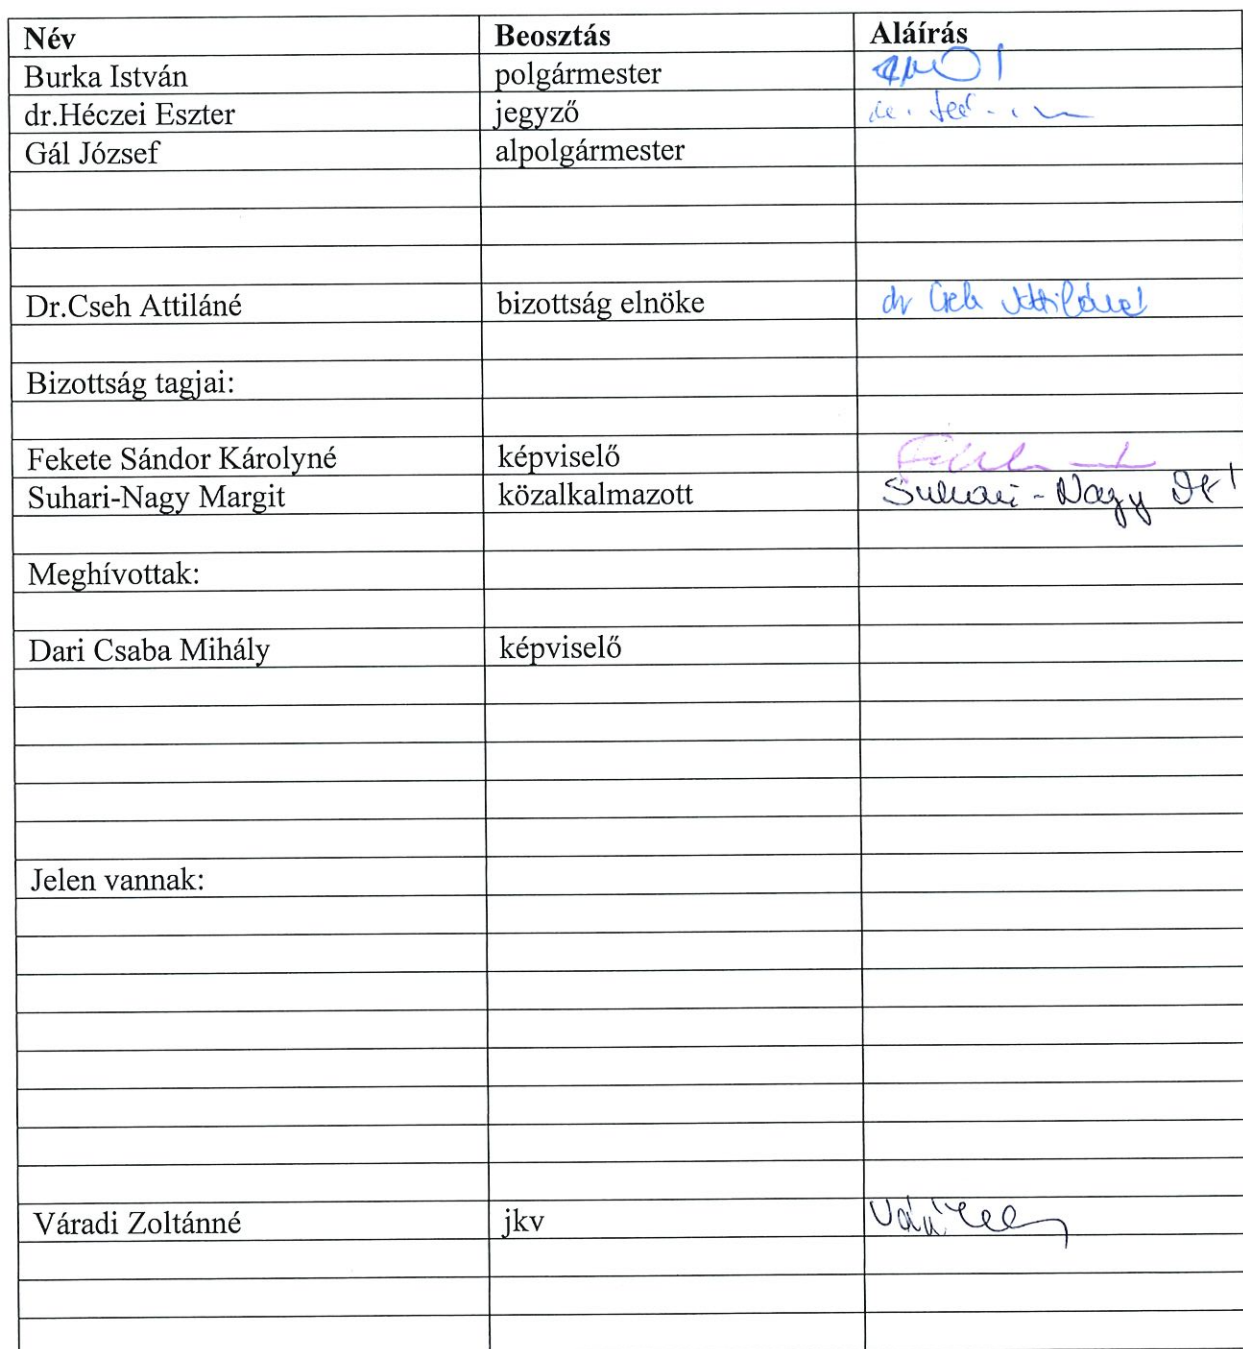 Név Beosztás Aláírás
Burka István polgármester
dr.Héczei Eszter jegyző
Gál József alpolgármester
Dr.Cseh Attiláné bizottság elnöke dr Cseh Attiláné
Bizottság tagjai:
Fekete Sándor Károlyné képviselő
Suhari-Nagy Margit közalkalmazott Suhari-Nagy M
Meghívottak:
Dari Csaba Mihály képviselő
Jelen vannak:
Váradi Zoltánné jkv